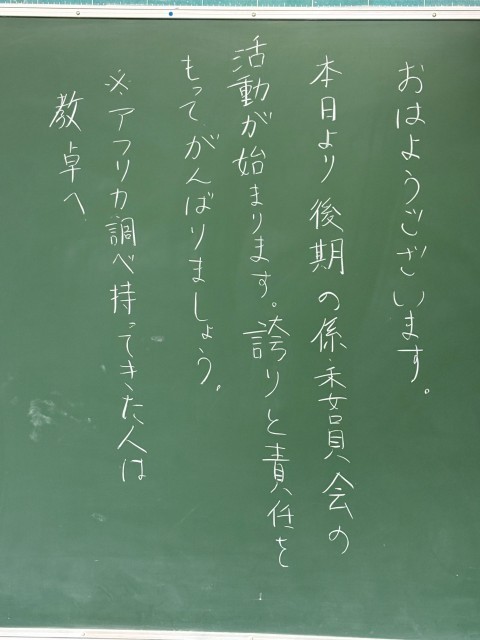 おはようございます。
本日より後期の係・委員会の
活動が始まります。誇りと責任を
もってがんばりましょう。
※アフリカ調べ持ってきた人は
教卓へ